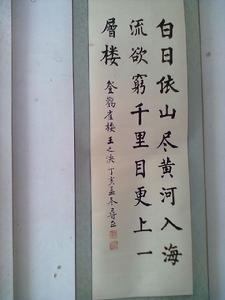 白日依山尽黄河入海
流欲穷千里目更上一
层楼
登鹳雀楼王之涣丁亥孟冬